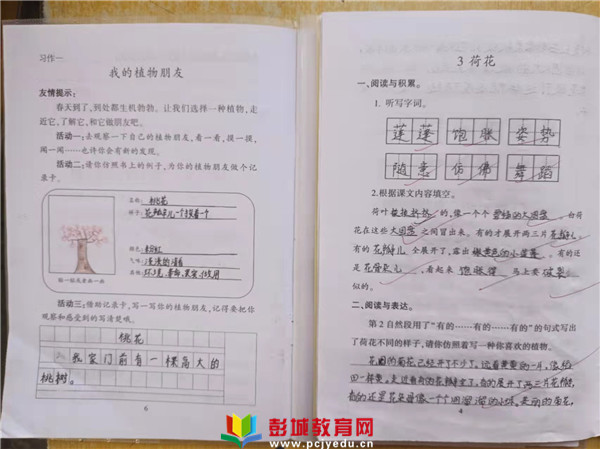 习作一
我的植物朋友
友情提示:
春天到了,到处都生机勃勃。让我们选择一种植物,走
近它,了解它,和它做朋友吧。
活动一:去观察一下自己的植物朋友,看一看,摸一摸,
闻一闻……也许你会有新的发现。
活动二:请你仿照书上的例子,为你的植物朋友做个记
录卡。
名称:桃花
样子:花瓣
颜色:粉红
气味:淡淡的清香
画一幅或者拍一张
活动三:借助记录卡,写一写你的植物朋友,记得要把你
观察和感受到的写清楚哦。
桃花
我家门前有一棵高大的
桃树。
6
3 荷花
一、阅读与积累。
1. 听写字词。
莲蓬 饱胀 姿势
随意 仿佛 舞蹈
2.根据课文内容填空。
荷叶挨挨挤挤的,像一个个碧绿的大圆盘。白荷
花在这些大圆盘之间冒出来。有的才展开两三片花瓣儿。
有的花瓣儿全展开了,露出嫩黄色的小莲蓬。有的还
是花骨朵儿,看起来饱胀得马上要破裂
似的。
二、阅读与表达。
第2自然段用了“有的……有的……有的”的句式写出
了荷花不同的样子,请你仿照着写一种你喜欢的植物。
花园的菊花已经开了不少了。远看黄黄的一片,像
的展开了两三片花瓣,
有的还是花朵
4
彭城教育网
www.pcjyedu.cn